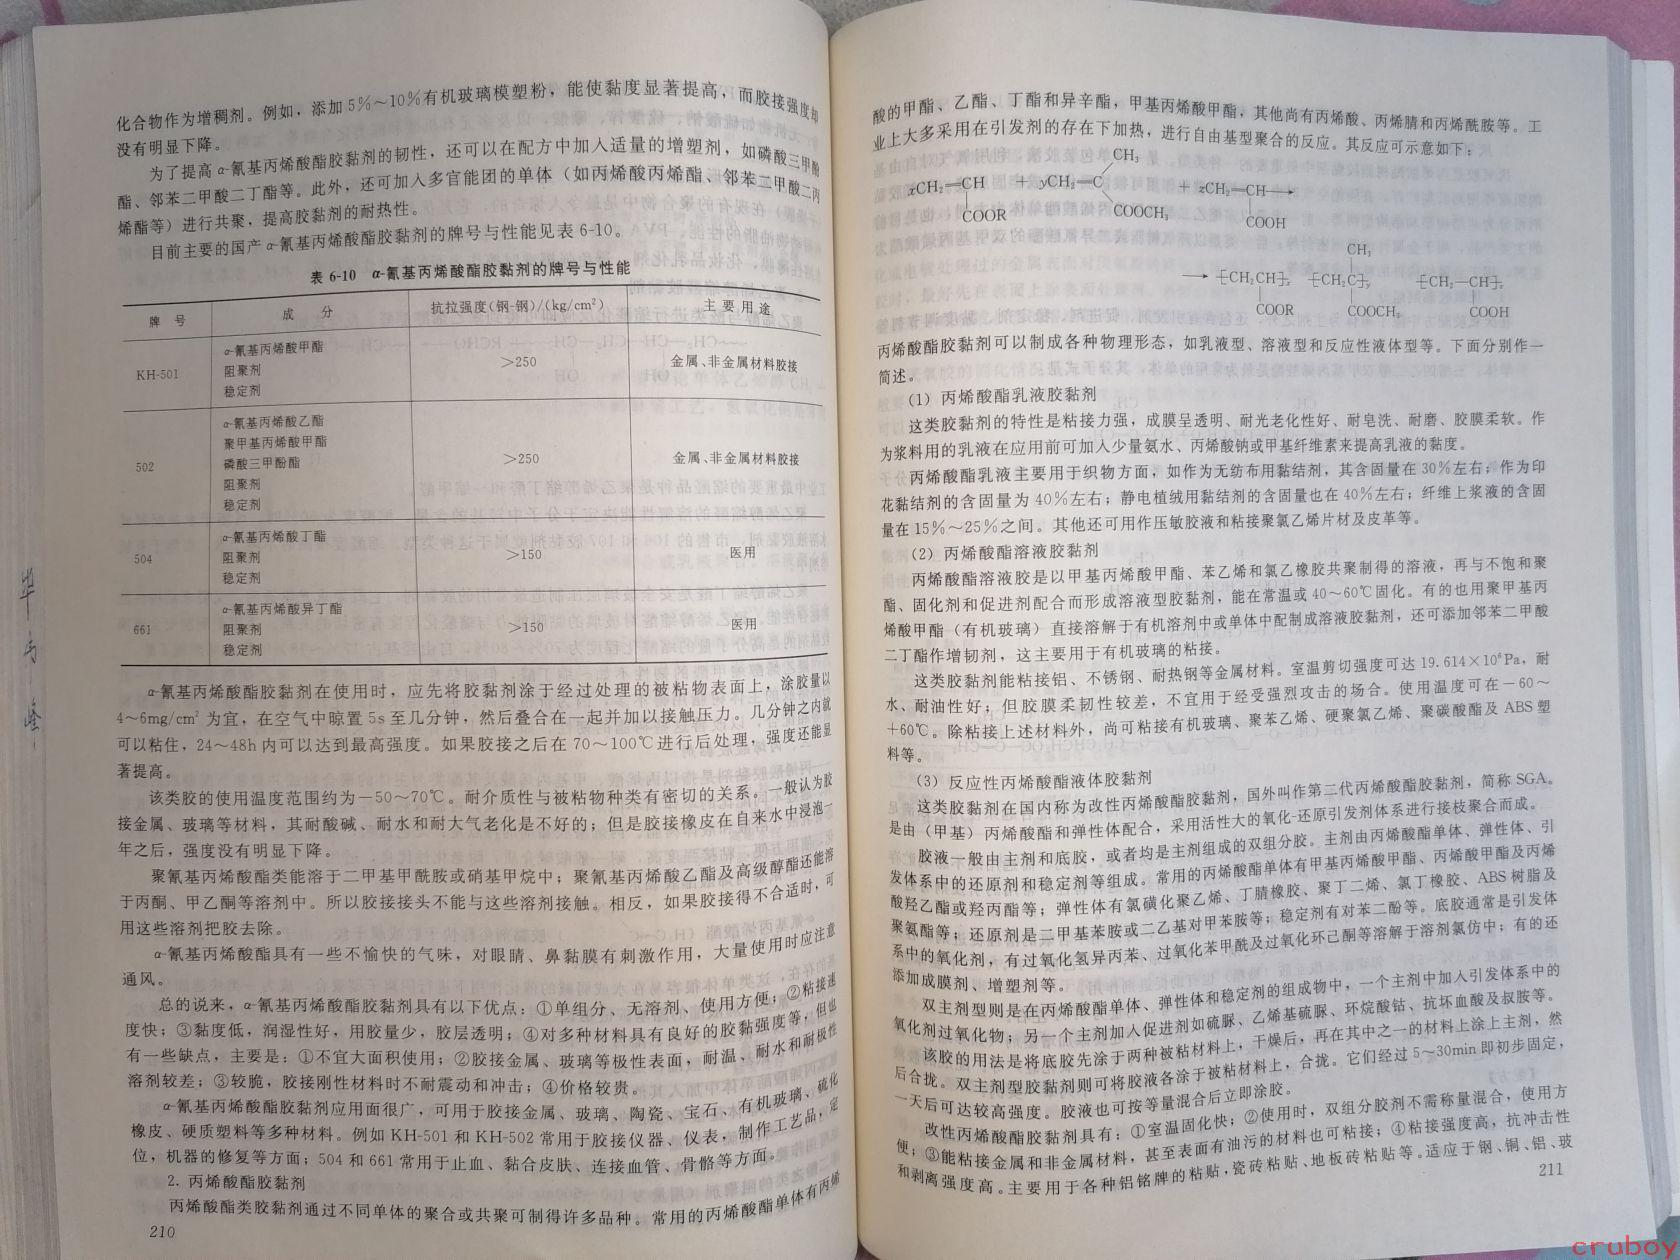 化合物作为增稠剂。例如，添加5%～10%有机玻璃模塑粉，能使黏度显著提高，而胶接强度却
没有明显下降。
为了提高α-氰基丙烯酸酯胶黏剂的韧性，还可以在配方中加入适量的增塑剂，如磷酸三甲酚
酯、邻苯二甲酸二丁酯等。此外，还可加入多官能团的单体（如丙烯酸丙烯酯、邻苯二甲酸二丙
烯酯等）进行共聚，提高胶黏剂的耐热性。
目前主要的国产α-氰基丙烯酸酯胶黏剂的牌号与性能见表6-10。
表 6-10 α-氰基丙烯酸酯胶黏剂的牌号与性能
牌 号 成 分 抗拉强度(钢-钢)/(kg/cm²) 主 要 用 途
KH-501 α-氰基丙烯酸甲酯 >250 金属、非金属材料胶接
阻聚剂
稳定剂
502 α-氰基丙烯酸乙酯 >250 金属、非金属材料胶接
聚甲基丙烯酸甲酯
磷酸三甲酚酯
阻聚剂
稳定剂
504 α-氰基丙烯酸丁酯 >150 医用
阻聚剂
稳定剂
661 α-氰基丙烯酸异丁酯 >150 医用
阻聚剂
稳定剂
α-氰基丙烯酸酯胶黏剂在使用时，应先将胶黏剂涂于经过处理的被粘物表面上，涂胶量以
4～6mg/cm²为宜，在空气中晾置5s至几分钟，然后叠合在一起并加以接触压力。几分钟之内就
可以粘住，24～48h内可以达到最高强度。如果胶接之后在70～100℃进行后处理，强度还能显
著提高。
该类胶的使用温度范围约为－50～70℃。耐介质性与被粘物种类有密切的关系。一般认为胶
接金属、玻璃等材料，其耐酸碱、耐水和耐大气老化是不好的；但是胶接橡皮在自来水中浸泡一
年之后，强度没有明显下降。
聚氰基丙烯酸酯类能溶于二甲基甲酰胺或硝基甲烷中；聚氰基丙烯酸乙酯及高级醇酯还能溶
于丙酮、甲乙酮等溶剂中。所以胶接接头不能与这些溶剂接触。相反，如果胶接得不合适时，可
用这些溶剂把胶去除。
α-氰基丙烯酸酯具有一些不愉快的气味，对眼睛、鼻黏膜有刺激作用，大量使用时应注意
通风。
总的说来，α-氰基丙烯酸酯胶黏剂具有以下优点：①单组分、无溶剂、使用方便；②粘接速
度快；③黏度低，润湿性好，用胶量少，胶层透明；④对多种材料具有良好的胶黏强度等，但也
有一些缺点，主要是：①不宜大面积使用；②胶接金属、玻璃等极性表面，耐温、耐水和耐极性
溶剂较差；③较脆，胶接刚性材料时不耐震动和冲击；④价格较贵。
α-氰基丙烯酸酯胶黏剂应用面很广，可用于胶接金属、玻璃、陶瓷、宝石、有机玻璃、硫化
橡皮、硬质塑料等多种材料。例如KH-501和KH-502常用于胶接仪器、仪表，制作工艺品，定
位，机器的修复等方面；504和661常用于止血、黏合皮肤、连接血管、骨骼等方面。
2. 丙烯酸酯胶黏剂
丙烯酸酯类胶黏剂通过不同单体的聚合或共聚可制得许多品种。常用的丙烯酸酯单体有丙烯
210
酸的甲酯、乙酯、丁酯和异辛酯，甲基丙烯酸甲酯，其他尚有丙烯酸、丙烯腈和丙烯酰胺等。工
业上大多采用在引发剂的存在下加热，进行自由基型聚合的反应。其反应可示意如下：
CH₃
xCH₂═CH + yCH₂═C + zCH₂═CH⟶
COOR COOCH₃ COOH
CH₃
⟶ ⁅CH₂CH⁆ₓ ⁅CH₂C⁆ᵧ ⁅CH₂—CH⁆z
COOR COOCH₃ COOH
丙烯酸酯胶黏剂可以制成各种物理形态，如乳液型、溶液型和反应性液体型等。下面分别作一
简述。
（1）丙烯酸酯乳液胶黏剂
这类胶黏剂的特性是粘接力强，成膜呈透明、耐光老化性好、耐皂洗、耐磨、胶膜柔软。作
为浆料用的乳液在应用前可加入少量氨水、丙烯酸钠或甲基纤维素来提高乳液的黏度。
丙烯酸酯乳液主要用于织物方面，如作为无纺布用黏结剂，其含固量在30%左右，作为印
花黏结剂的含固量为40%左右；静电植绒用黏结剂的含固量也在40%左右；纤维上浆液的含固
量在15%～25%之间。其他还可用作压敏胶液和粘接聚氯乙烯片材及皮革等。
（2）丙烯酸酯溶液胶黏剂
丙烯酸酯溶液胶是以甲基丙烯酸甲酯、苯乙烯和氯乙橡胶共聚制得的溶液，再与不饱和聚
酯、固化剂和促进剂配合而形成溶液型胶黏剂，能在常温或40～60℃固化。有的也用聚甲基丙
烯酸甲酯（有机玻璃）直接溶解于有机溶剂中或单体中配制成溶液胶黏剂，还可添加邻苯二甲酸
二丁酯作增韧剂，这主要用于有机玻璃的粘接。
这类胶黏剂能粘接铝、不锈钢、耐热钢等金属材料。室温剪切强度可达19.614×10⁶Pa，耐
水、耐油性好；但胶膜柔韧性较差，不宜用于经受强烈攻击的场合。使用温度可在－60～
+60℃。除粘接上述材料外，尚可粘接有机玻璃、聚苯乙烯、硬聚氯乙烯、聚碳酸酯及ABS塑
料等。
（3）反应性丙烯酸酯液体胶黏剂
这类胶黏剂在国内称为改性丙烯酸酯胶黏剂，国外叫作第二代丙烯酸酯胶黏剂，简称SGA。
是由（甲基）丙烯酸酯和弹性体配合，采用活性大的氧化-还原引发剂体系进行接枝聚合而成。
胶液一般由主剂和底胶，或者均是主剂组成的双组分胶。主剂由丙烯酸酯单体、弹性体、引
发体系中的还原剂和稳定剂等组成。常用的丙烯酸酯单体有甲基丙烯酸甲酯、丙烯酸甲酯及丙烯
酸羟乙酯或羟丙酯等；弹性体有氯磺化聚乙烯、丁腈橡胶、聚丁二烯、氯丁橡胶、ABS树脂及
聚氨酯等；还原剂是二甲基苯胺或二乙基对甲苯胺等；稳定剂有对苯二酚等。底胶通常是引发体
系中的氧化剂，有过氧化氢异丙苯、过氧化苯甲酰及过氧化环己酮等溶解于溶剂氯仿中；有的还
添加成膜剂、增塑剂等。
双主剂型则是在丙烯酸酯单体、弹性体和稳定剂的组成物中，一个主剂中加入引发体系中的
氧化剂过氧化物；另一个主剂加入促进剂如硫脲、乙烯基硫脲、环烷酸钴、抗坏血酸及叔胺等。
该胶的用法是将底胶先涂于两种被粘材料上，干燥后，再在其中之一的材料上涂上主剂，然
后合拢。双主剂型胶黏剂则可将胶液各涂于被粘材料上，合拢。它们经过5～30min即初步固定，
一天后可达较高强度。胶液也可按等量混合后立即涂胶。
改性丙烯酸酯胶黏剂具有：①室温固化快；②使用时，双组分胶剂不需称量混合，使用方
便；③能粘接金属和非金属材料，甚至表面有油污的材料也可粘接；④粘接强度高，抗冲击性
和剥离强度高。主要用于各种铝铭牌的粘贴，瓷砖粘贴、地板砖粘贴等。适应于钢、铜、铝、玻
211
cruboy